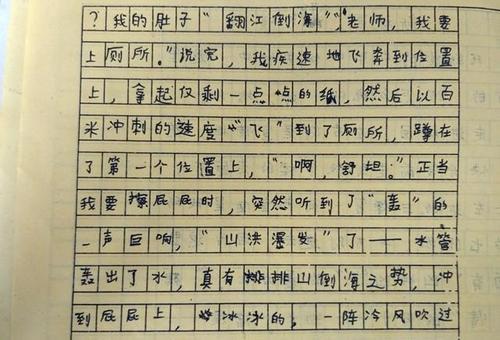 ？我的肚子“翻江倒海”，“老师，我要
上厕所。”说完，我疾速地飞奔到位置
上，拿起仅剩一点点的纸，然后以百
米冲刺的速度“飞”到了厕所，蹲在
了第一个位置上，“啊，舒坦。”正当
我要擦屁屁时，突然听到了“轰”的
一声巨响，“山洪瀑发”了——水管
轰出了水，真有排山倒海之势，冲
到屁屁上，冰冰的，一阵冷风吹过